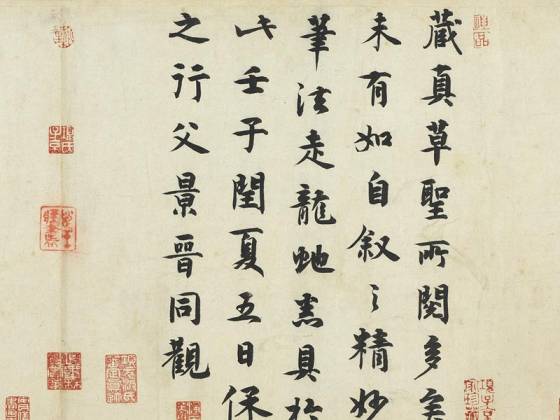 藏真草聖所閱多矣
未有如自叙之精妙
筆法走龍虵悉具於
此壬子閏夏五日保
之行父景晉同觀
神品